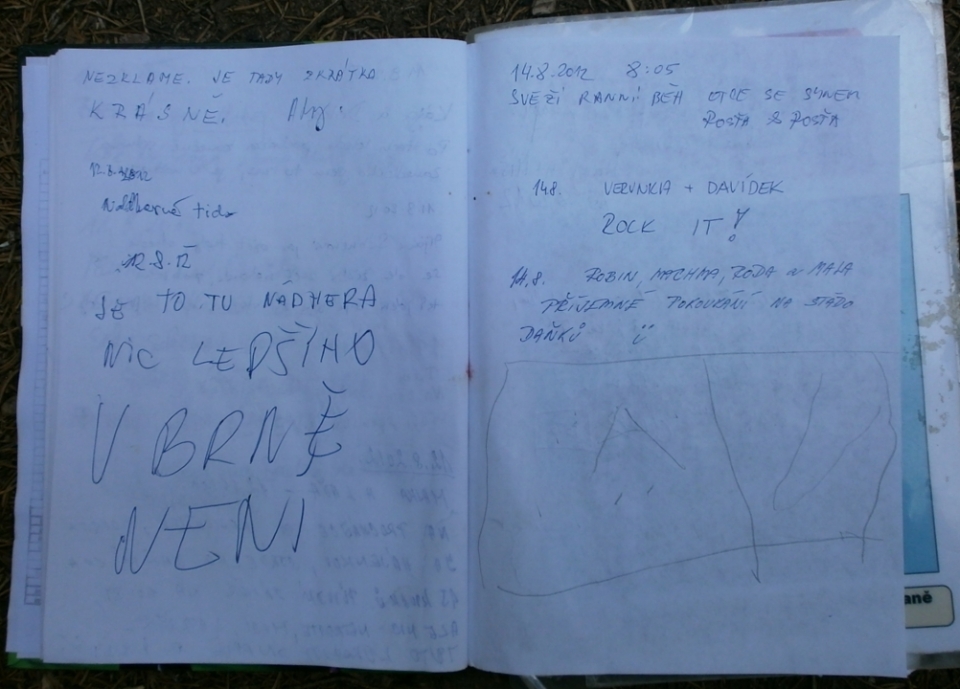 NEZKLAME. JE TADY ZKRÁTKA
KRÁSNĚ.
12.8.2012
Nádherné ticho
12.8.12
JE TO TU NÁDHERA
NIC LEPŠÍHO
V BRNĚ
NENI
14.8.2012 8:05
SVĚŽÍ RANNÍ BĚH OTCE SE SYNEM
ROSŤA & ROSŤA
14.8. VERUNKIA + DAVÍDEK
ROCK IT!
14.8. ROBIN, MACHMA, RÓĎA a MALA
PŘÍJEMNÉ POKOUKÁNÍ NA STÁDO
DAŇKŮ
aně